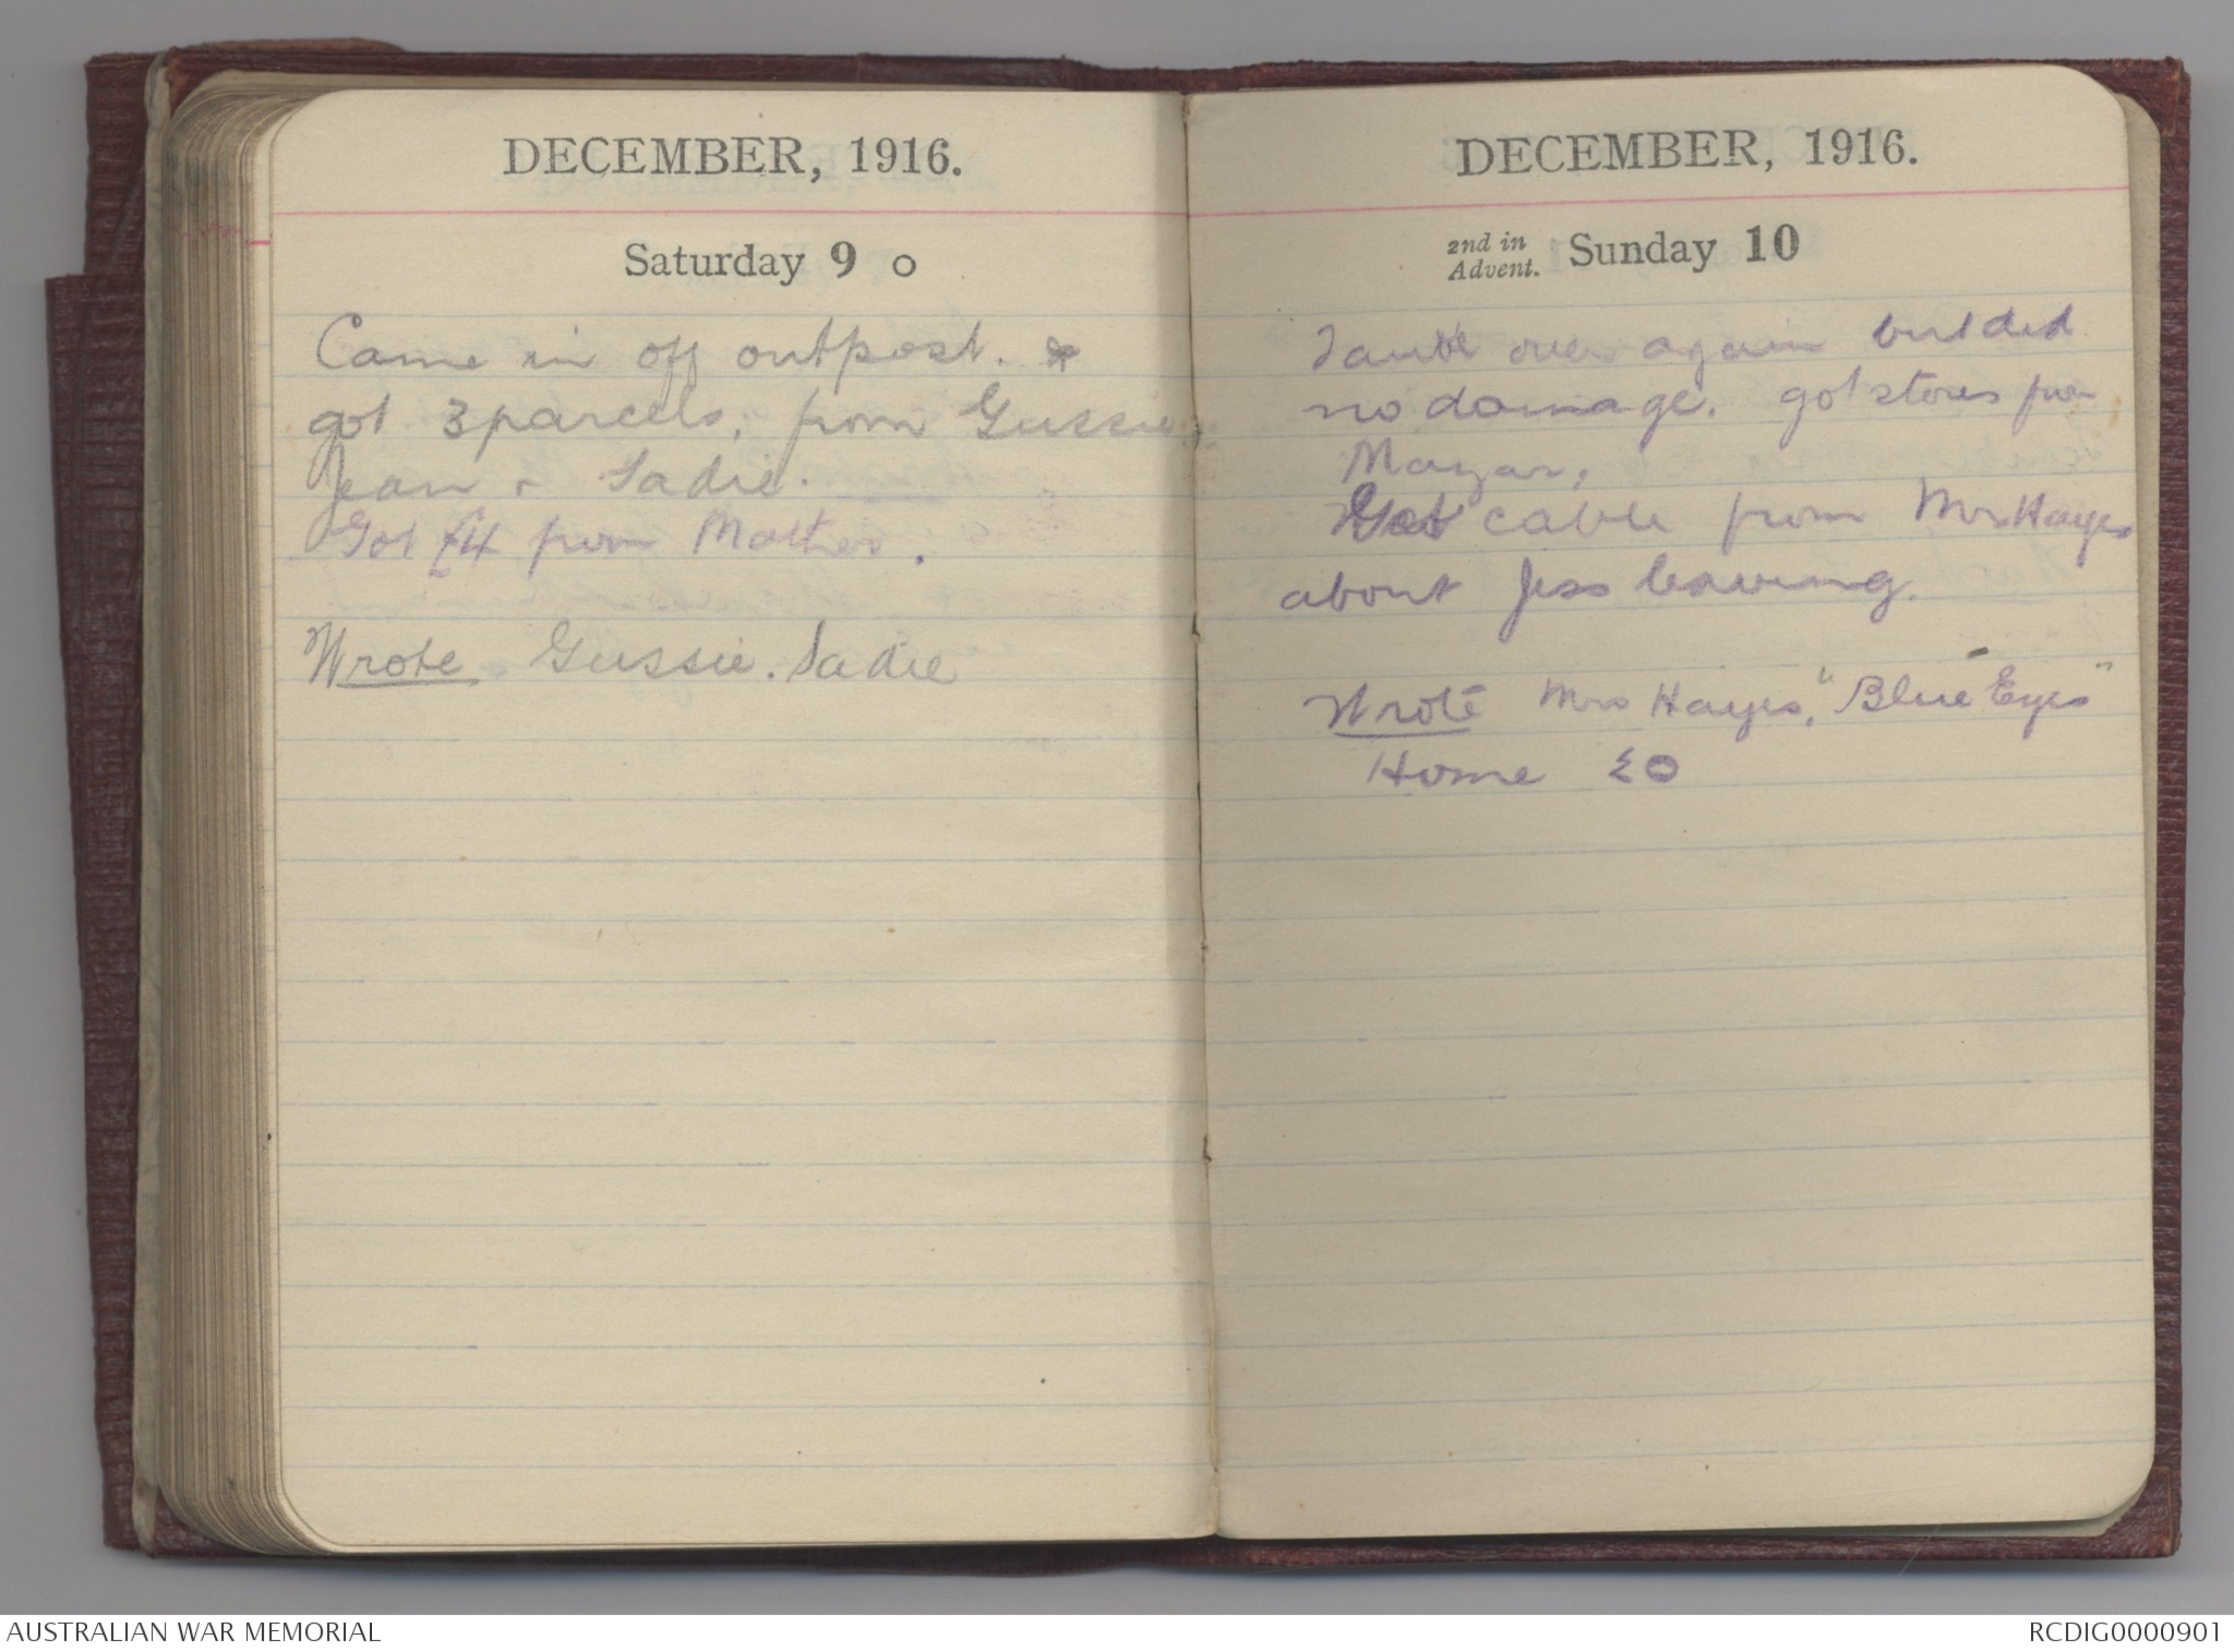 DECEMBER, 1916.
Saturday 9 o
Came in off outpost. &
got 3 parcels, from Gussie
Jean & Sadie.
Got £4 from Mother.
Wrote Gussie. Sadie
DECEMBER, 1916.
2nd in Advent. Sunday 10
Taube over again but did
no damage. got stores from
Mazar.
Got cable from Mrs Hayes
about Jess leaving.
Wrote Mrs Hayes, "Blue Eyes"
Home
AUSTRALIAN WAR MEMORIAL
RCDIG0000901